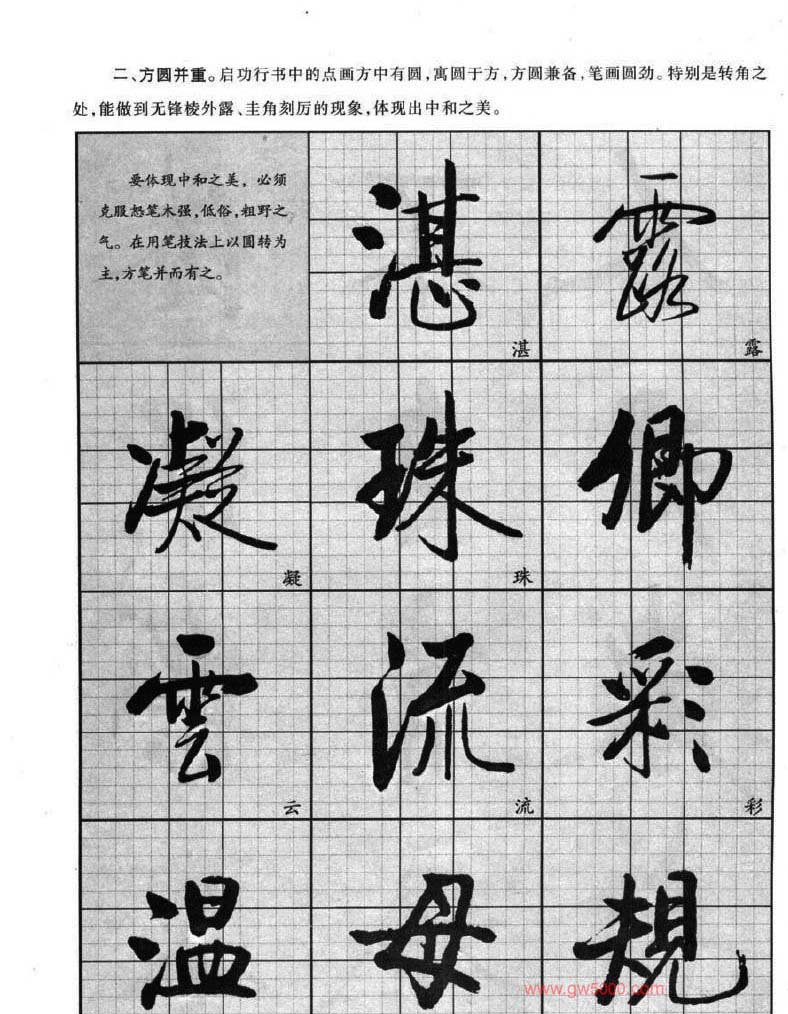 二、方圆并重。启功行书中的点画方中有圆,寓圆于方,方圆兼备,笔画圆劲。特别是转角之
处,能做到无锋棱外露、圭角刻厉的现象,体现出中和之美。
要体现中和之美，必须
克服怒笔木强,低俗,粗野之
气。在用笔技法上以圆转为
主,方笔并而有之。
湛 露
湛 露
凝 珠 卿
凝 珠
雲 流 彩
云 流 彩
温 母 規
www.gw5000.com